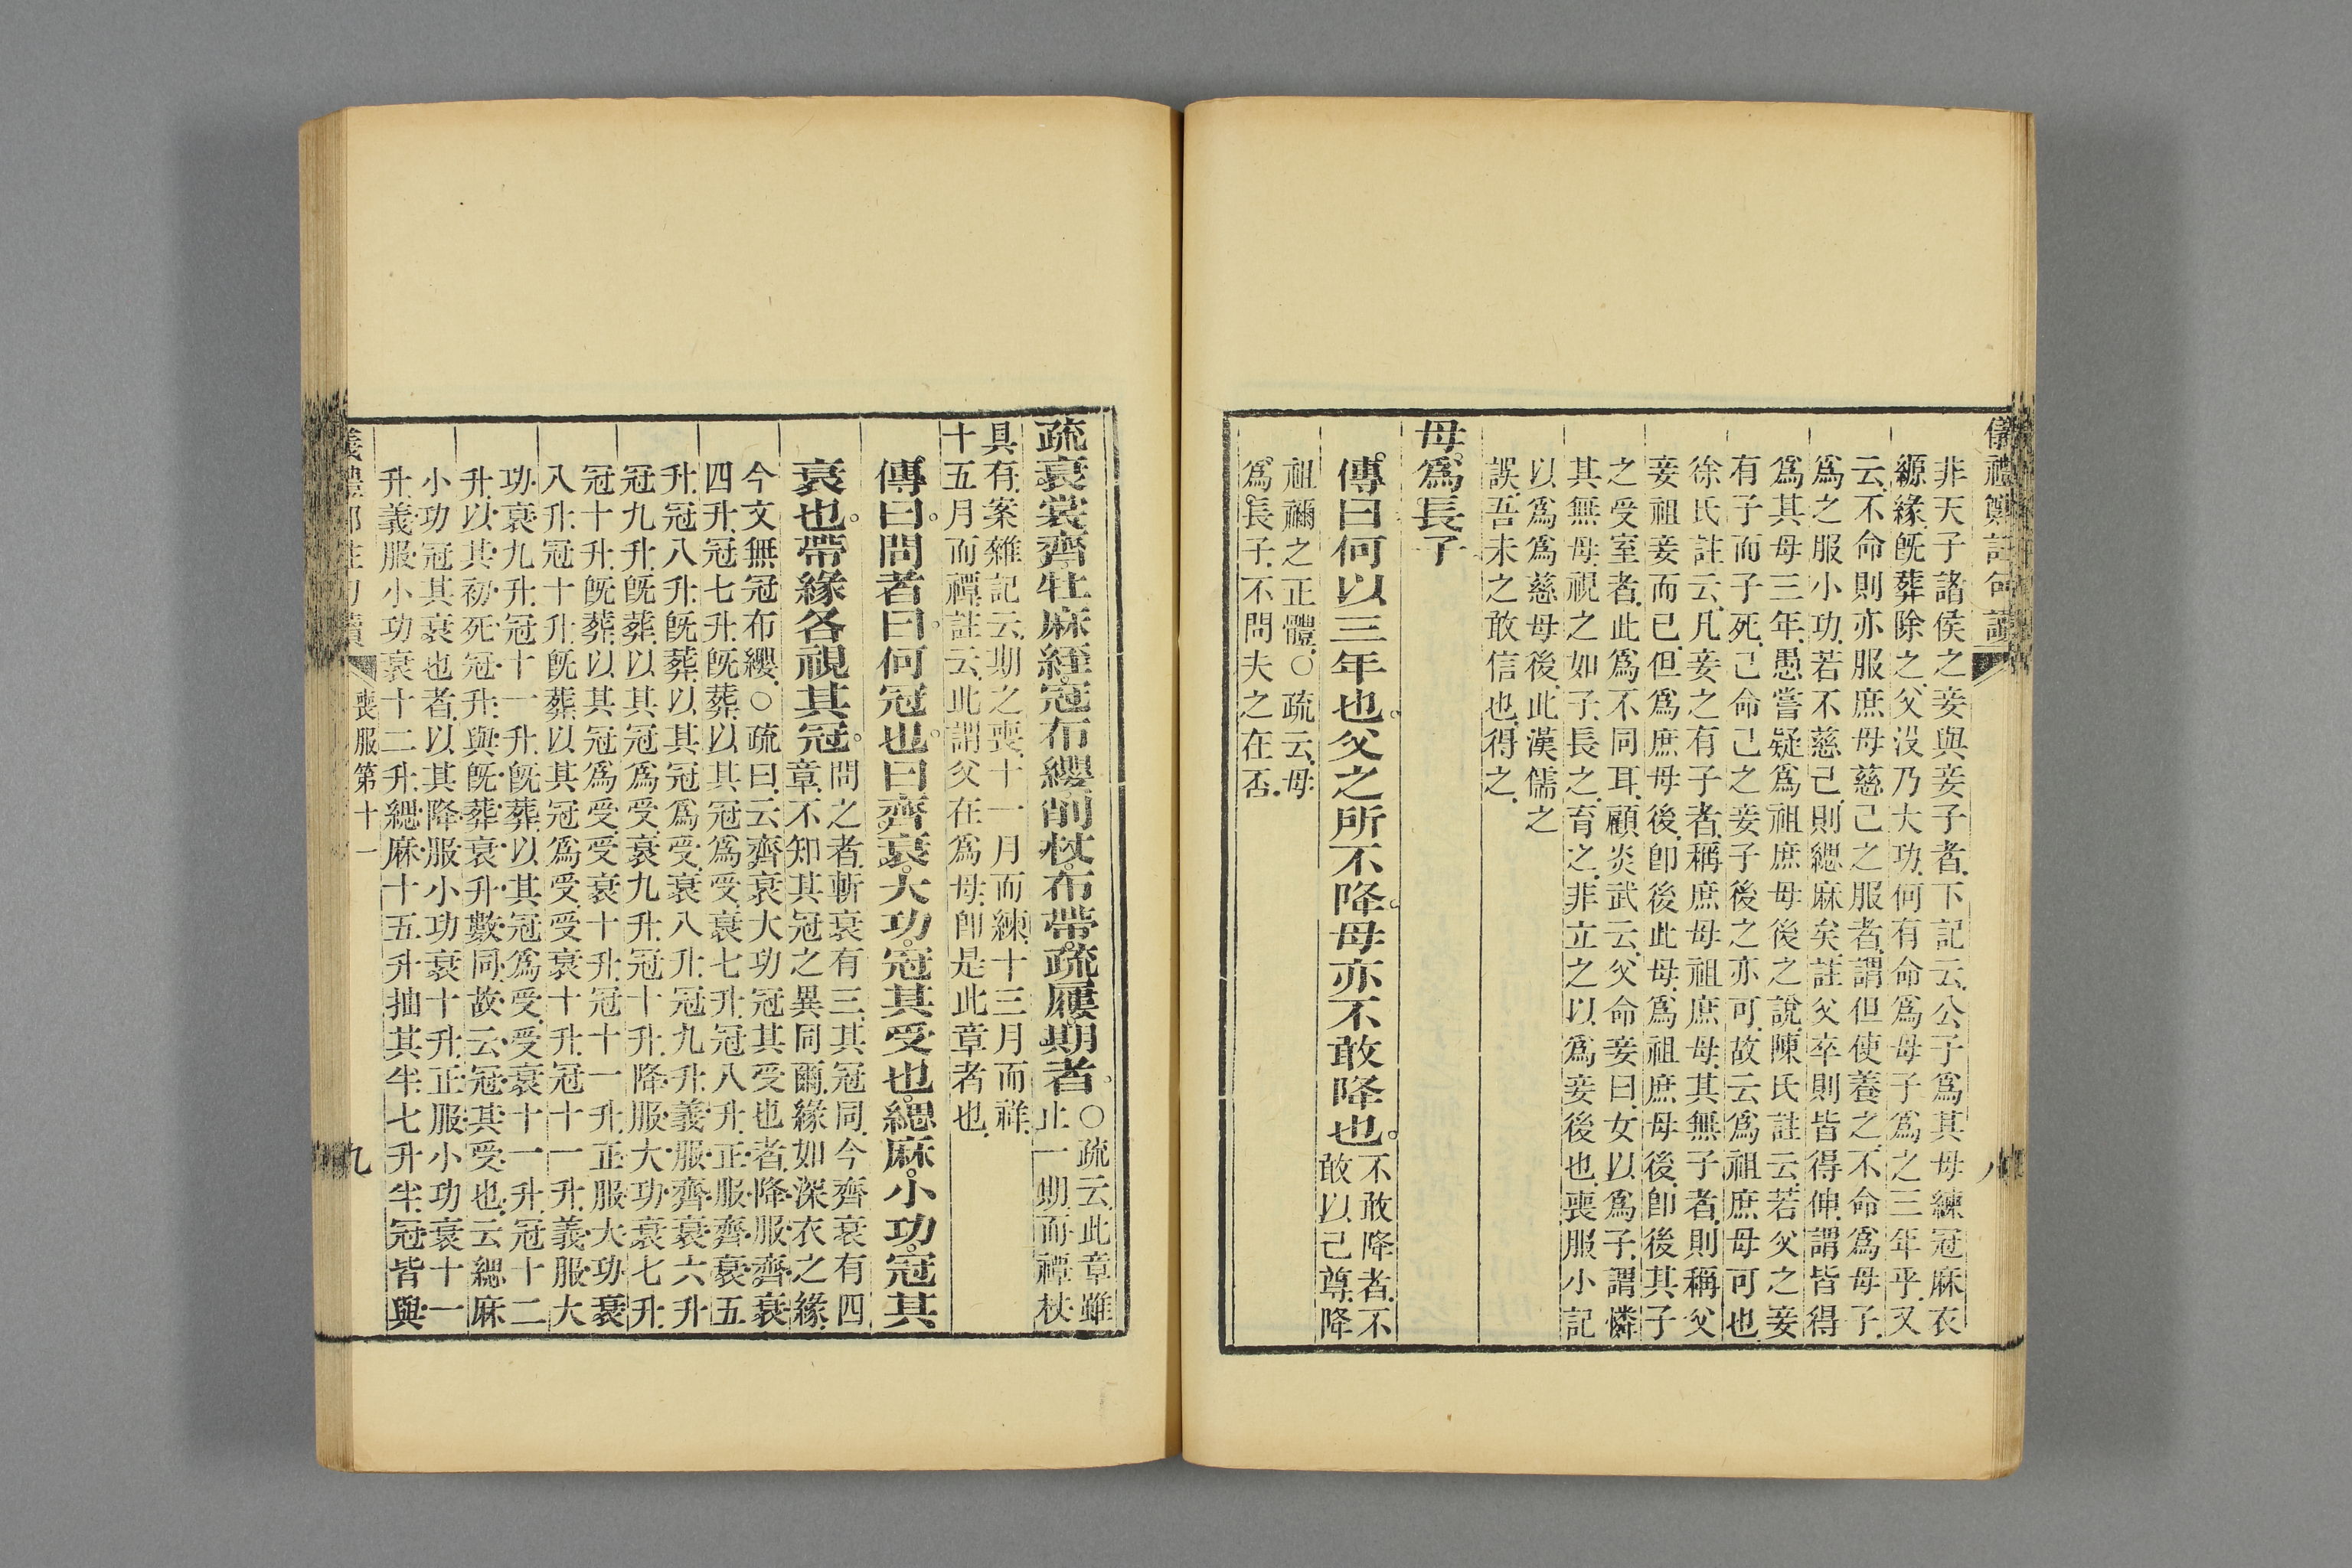 儀禮鄭註句讀
八
非天子諸侯之妾與妾子者、下記云、公子爲其母練冠麻衣
縓緣、旣葬除之、父没乃大功、何有命爲母子爲之三年乎、又
云、不命則亦服庶母慈己之服者、謂但使養之、不命爲母子、
爲之服小功、若不慈己、則緦麻矣、註父卒則皆得伸、謂皆得
爲其母三年、愚嘗疑爲祖庶母後之說、陳氏註云、若父之妾
有子而子死、己命己之妾子後之亦可、故云爲祖庶母可也、
徐氏註云、凡妾之有子者、稱庶母祖庶母、其無子者、則稱父
妾祖妾而已、但爲庶母後、卽後此母、爲祖庶母後、卽後其子
之受室者、此爲不同耳、顧炎武云、父命妾曰、女以爲子、謂憐
其無母、視之如子、長之、育之、非立之以爲妾後也、喪服小記
以爲爲慈母後、此漢儒之
誤、吾未之敢信也、得之、
母爲長子
傳曰、何以三年也。父之所不降。母亦不敢降也。不敢降者、不
敢以己尊、降
祖禰之正體、○疏云、母
爲長子、不問夫之在否、
疏衰裳齊牡麻絰。冠布纓。削杖。布帶。疏屨。期者。○疏云、此章雖
止一期、而禫杖
具有、案雜記云、期之喪、十一月而練、十三月而祥、
十五月而禫、註云、此謂父在爲母、卽是此章者也、
傳曰。問者曰。何冠也。曰齊衰。大功。冠其受也。緦麻。小功。冠其
衰也。帶緣各視其冠。問之者、斬衰有三、其冠同、今齊衰有四
章、不知其冠之異同爾、緣、如深衣之緣、
今文無冠布纓、○疏曰、云齊衰大功冠其受也者、降服齊衰
四升、冠七升、旣葬、以其冠爲受、衰七升、冠八升、正服齊衰五
升、冠八升、旣葬、以其冠爲受、衰八升、冠九升、義服齊衰六升
冠九升、旣葬、以其冠爲受、衰九升、冠十升、降服大功衰七升、
冠十升、旣葬、以其冠爲受、受衰十升、冠十一升、正服大功衰
八升、冠十升、旣葬、以其冠爲受、受衰十升、冠十一升、義服大
功衰九升、冠十一升、旣葬、以其冠爲受、受衰十一升、冠十二
升、以其初死冠升、與旣葬衰升數同、故云、冠其受也、云緦麻
小功冠其衰也者、以其降服小功衰十升、正服小功衰十一
升、義服小功衰十二升、緦麻十五升抽其半七升半、冠皆與
喪服第十一
九